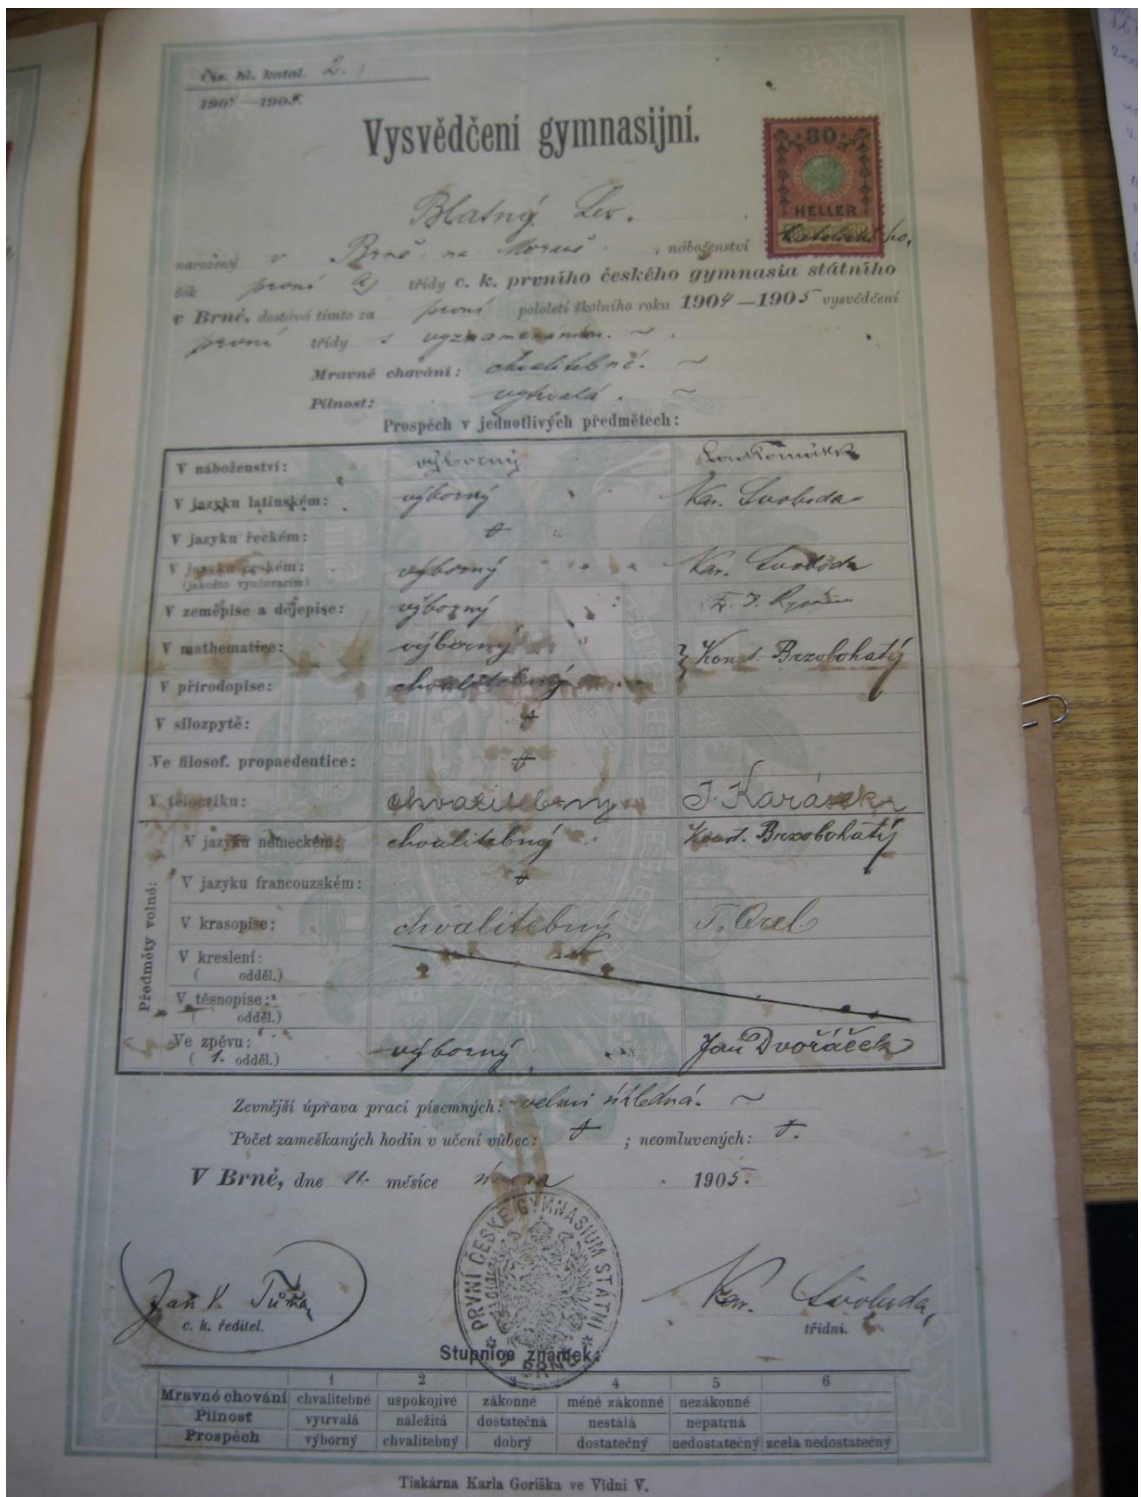 Čís. hl. katal. 2.
1904—1905.
Vysvědčení gymnasijní.
80
HELLER
Blatný Lev.
narozený v Brně na Moravě, náboženství katolického,
žák první a) třídy c. k. prvního českého gymnasia státního
v Brně, dostává tímto za první pololetí školního roku 1904—1905 vysvědčení
první třídy s vyznamenáním. ~
Mravné chování: chvalitebné. ~
Pilnost: vytrvalá. ~
Prospěch v jednotlivých předmětech:
V náboženství: výborný
V jazyku latinském: výborný Kar. Svoboda
V jazyku řeckém: +
V jazyku českém: výborný Kar. Svoboda
(jakožto vyučovacím)
V zeměpise a dějepise: výborný
V mathematice: výborný } Konst. Brzobohatý
V přírodopise: chvalitebný
V silozpytě: +
Ve filosof. propaedeutice: +
V tělocviku: chvalitebný J. Karásek
Předměty volné:
V jazyku německém: chvalitebný Konst. Brzobohatý
V jazyku francouzském: +
V krasopise: chvalitebný T. Orel
V kreslení:
( odděl.)
V těsnopise:
( odděl.)
Ve zpěvu: výborný Jan Dvořáček
( 1. odděl.)
Zevnější úprava prací písemných: velmi úhledná. ~
Počet zameškaných hodin v učení vůbec: + ; neomluvených: +.
V Brně, dne 11. měsíce února 1905.
PRVNÍ ČESKÉ GYMNASIUM STÁTNÍ
V BRNĚ
Jan V. Tůma,
c. k. ředitel.
Kar. Svoboda,
třídní.
Stupnice známek:
1 2 3 4 5 6
Mravné chování chvalitebné uspokojivé zákonné méně zákonné nezákonné
Pilnost vytrvalá náležitá dostatečná nestálá nepatrná
Prospěch výborný chvalitebný dobrý dostatečný nedostatečný zcela nedostatečný
Tiskárna Karla Goriška ve Vídni V.